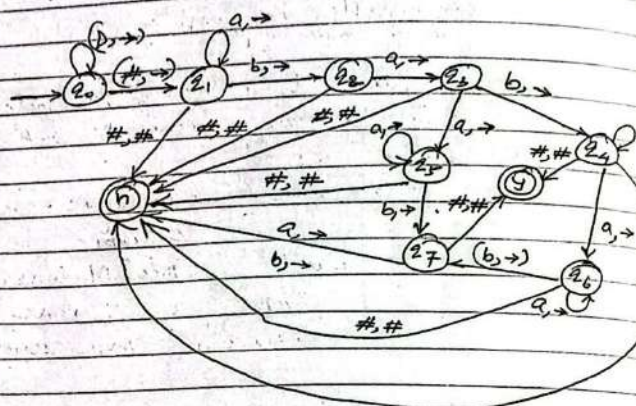 a,→
(▷,→)
q₀ (#,→) q₁ b,→ q₂ a,→ q₃
b,→
#,# #,# #,#
a,→ a,→ q₅
#,# q₄
n #,# y
b,→ #,# a,→
a,→ q₇ (b,→) q₆
b,→ a,→
#,#